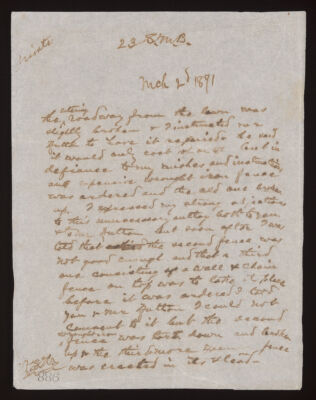 Private
23 S.M.B.
Mch 2d 1891
the roadway from the town was
slightly broken & I instructed Mr
Hutton to have it repaired he said
it would only cost but in
defiance to my wishes and instructions
an expensive wrought iron fence
was ordered and the old one broken
up. I expressed my strong objections
to this unnecessary outlay both to you
& to Mr Hutton but soon after I was
told that the second fence was
not good enough and that a third
one consisting of a wall & chain
fence on top was to take its place
before it was ordered I told
you & Mr Hutton I could not
consent to it but the second
fence was torn down and broken
up & the third more fence
was erected in its stead
886